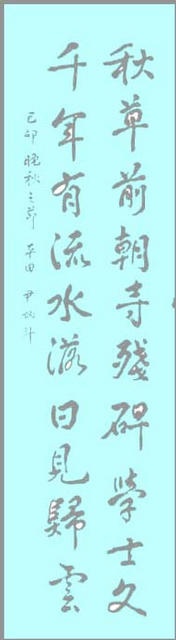 秋草前朝寺殘碑學士文
千年有流水落日見歸雲
己卯晚秋之節 平田 尹炳斗